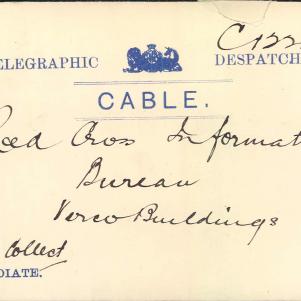 C122
ELEGRAPHIC DESPATCH
CABLE.
Red Cross Informat
Bureau
Verco Buildings
Collect
DIATE.